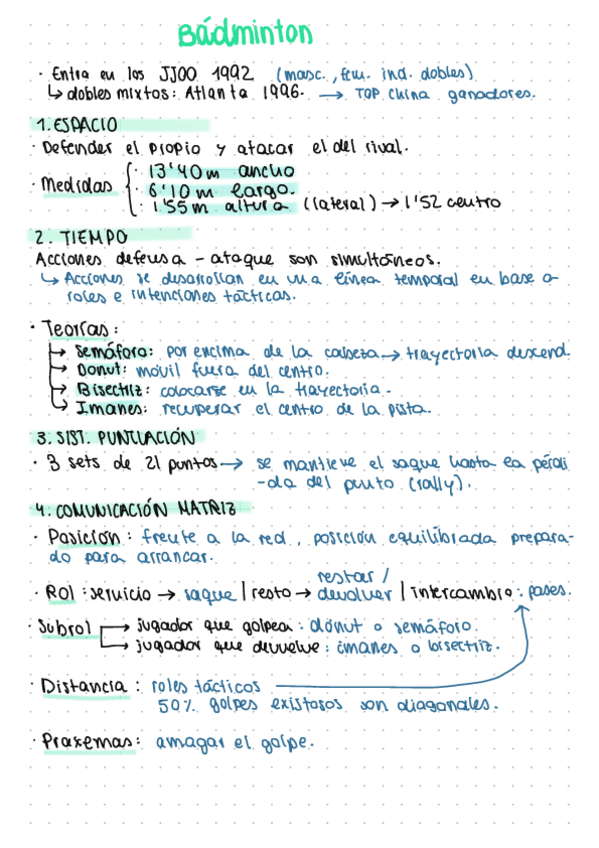 Bádminton
· Entra en los JJOO 1992 (masc., fem. ind. dobles)
↳ dobles mixtos: Atlanta 1996. → TOP China ganadores.
1. ESPACIO
· Defender el propio y atacar el del rival.
· Medidas { · 13'40 m ancho
· 6'10 m largo.
· 1'55 m altura (lateral) → 1'52 centro
2. TIEMPO
Acciones defensa - ataque son simultáneos.
↳ Acciones se desarrollan en una línea temporal en base a
roles e intenciones tácticas.
· Teorías:
→ Semáforo: por encima de la cabeza → trayectoria descend.
→ Donut: móvil fuera del centro.
→ Bisectriz: colocarse en la trayectoria.
↳ Imanes: recuperar el centro de la pista.
3. SIST. PUNTUACIÓN
· 3 sets de 21 puntos → se mantiene el saque hasta la pérdi
-da del punto (rally).
4. COMUNICACIÓN MATRIZ
· Posición: frente a la red, posición equilibrada prepara-
do para arrancar.
· Rol: servicio → saque | resto → restar / devolver | intercambio: pases.
· Subrol → jugador que golpea: dónut o semáforo.
→ jugador que devuelve: imanes o bisectriz.
· Distancia: roles tácticos
50% golpes existosos son diagonales.
· Praxemas: amagar el golpe.